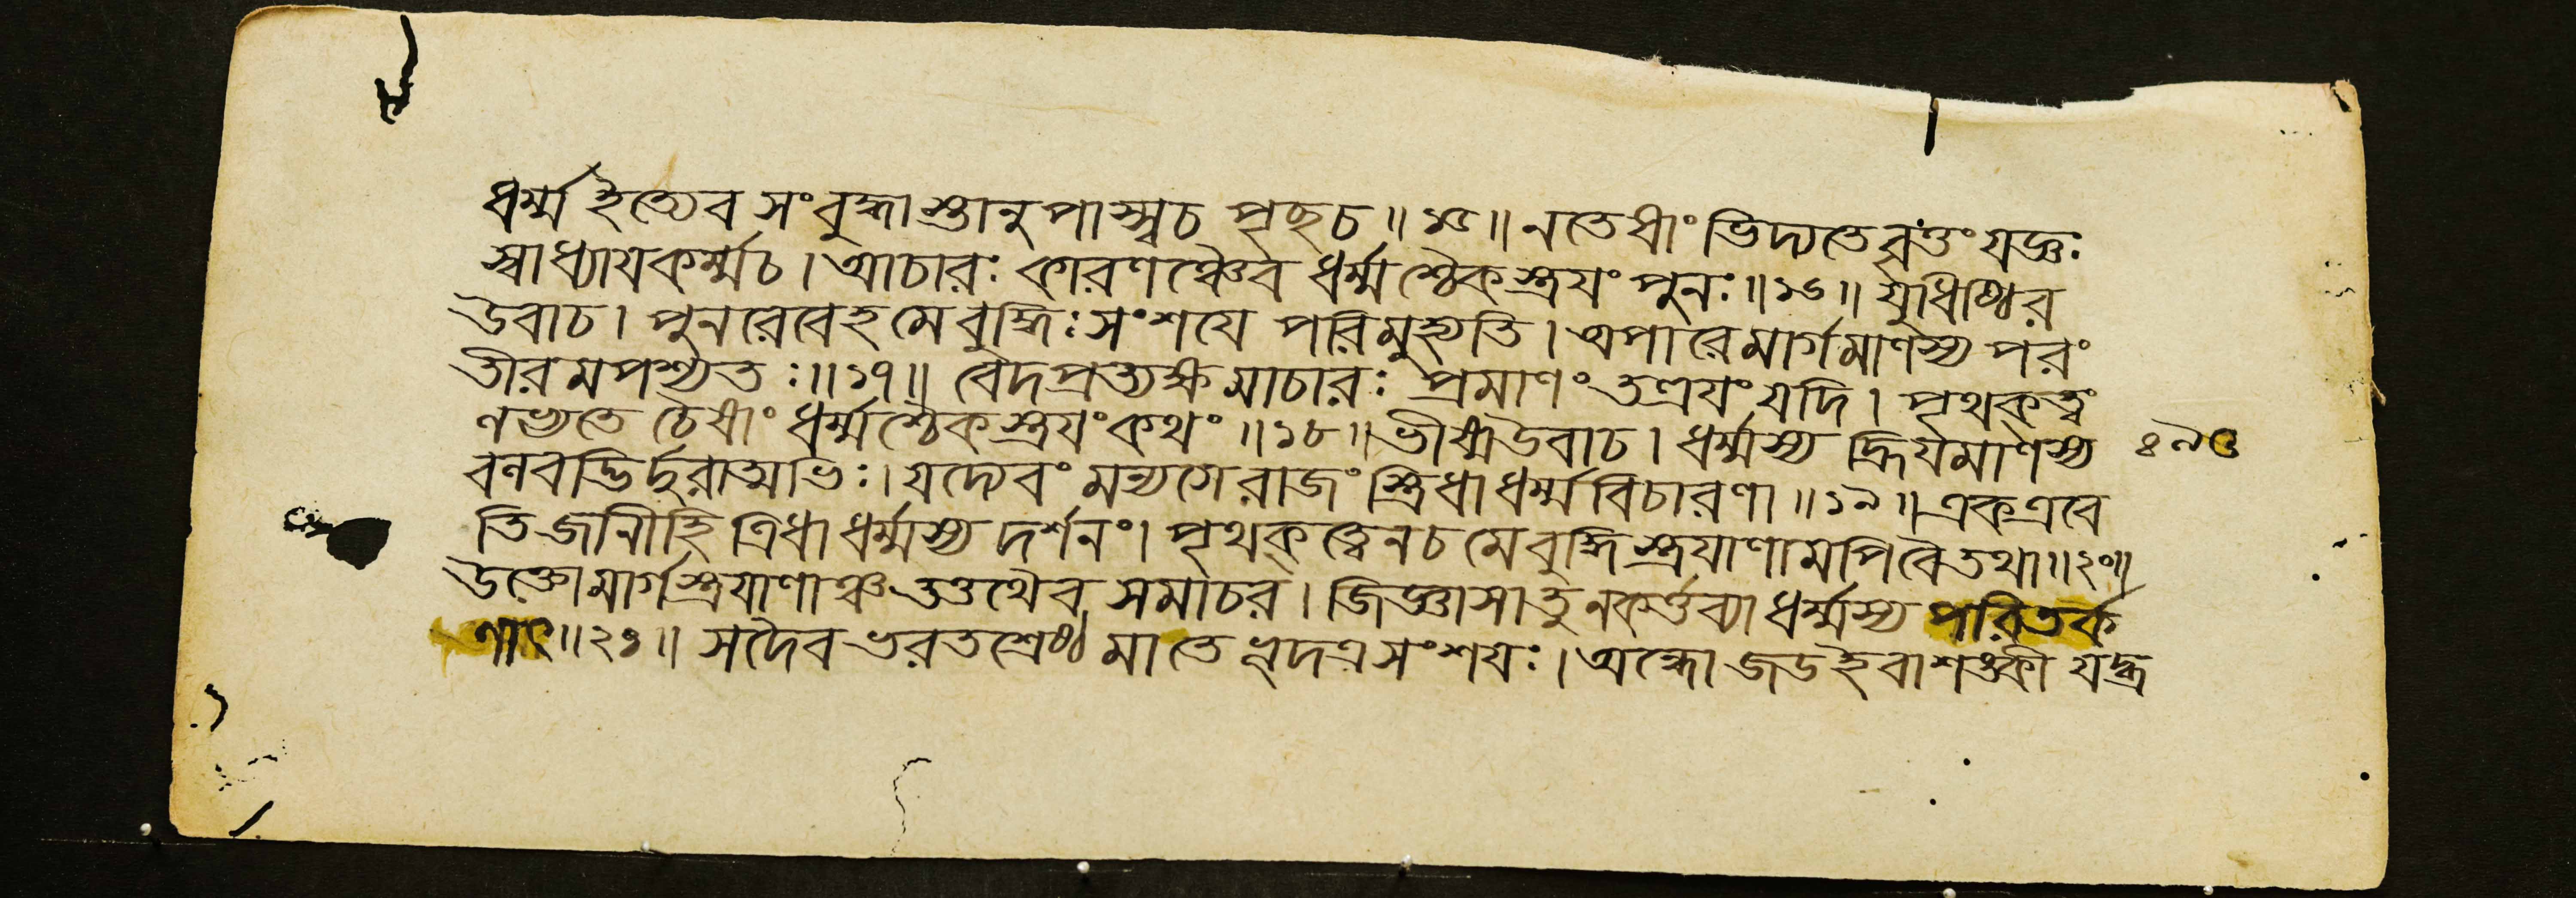 ধর্ম্ম ইত্যেব সংবুদ্ধাস্তানুপাস্স্বচ পৃছচ॥১৫॥ নতেষাং ভিদ্যতে বৃত্তং যজ্ঞঃ
স্বাধ্যাযকর্ম্মচ। আচারঃ কারণঞ্চৈব ধর্ম্মশ্চৈকস্ত্রযং পুনঃ॥১৬॥ যুধিষ্ঠির
উবাচ। পুনরেবেহ মে বুদ্ধিঃ সংশযে পরিমুহ্যতি। অপারে মার্গমাণস্য পরং
তীরমপশ্যতঃ॥১৭॥ বেদপ্রত্যক্ষমাচারঃ প্রমাণং তত্রযং যদি। পৃথকত্বং
ণভ্যতে চৈষাং ধর্ম্মশ্চৈকস্ত্রযং কথং॥১৮॥ ভীষ্ম উবাচ। ধর্ম্মস্য হ্রিযমাণস্য
বনবদ্ভির্দুরাত্মভিঃ। যদ্যেবং মন্যগে রাজং স্ত্রিধা ধর্ম্মবিচারণা॥১৯॥ এক এবে
তি জানীহি ত্রিধা ধর্ম্মস্য দর্শনং। পৃথক্ত্বেনচ মে বুদ্ধিস্ত্রযাণামপি বৈ তথা॥২০॥
উক্তো মার্গস্ত্রযাণাঞ্চ তত্তথৈব সমাচর। জিজ্ঞাসাতুনকর্ত্তব্যা ধর্ম্মস্য পরিতর্ক
ণাৎ॥২১॥ সদৈব ভরতশ্রেষ্ঠ মা তে ভূদত্র সংশযঃ। অন্ধো জড ইবাশঙ্কী যদ্ব্র